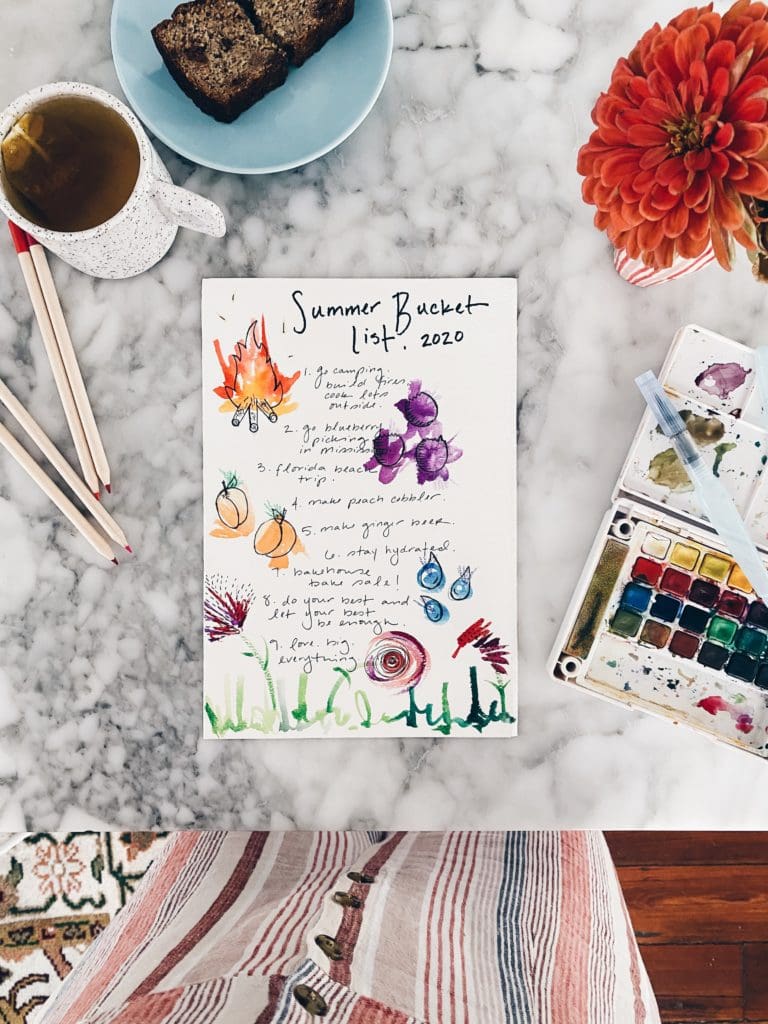 Summer Bucket
List. 2020
1. go camping.
build fires.
cook lots
outside.
2. go blueberry
picking
in mississi
3. florida beach
trip.
4. make peach cobbler.
5. make ginger beer.
6. stay hydrated.
7. bakehouse
bake sale!
8. do your best and
let your best
be enough.
9. love. big.
everything